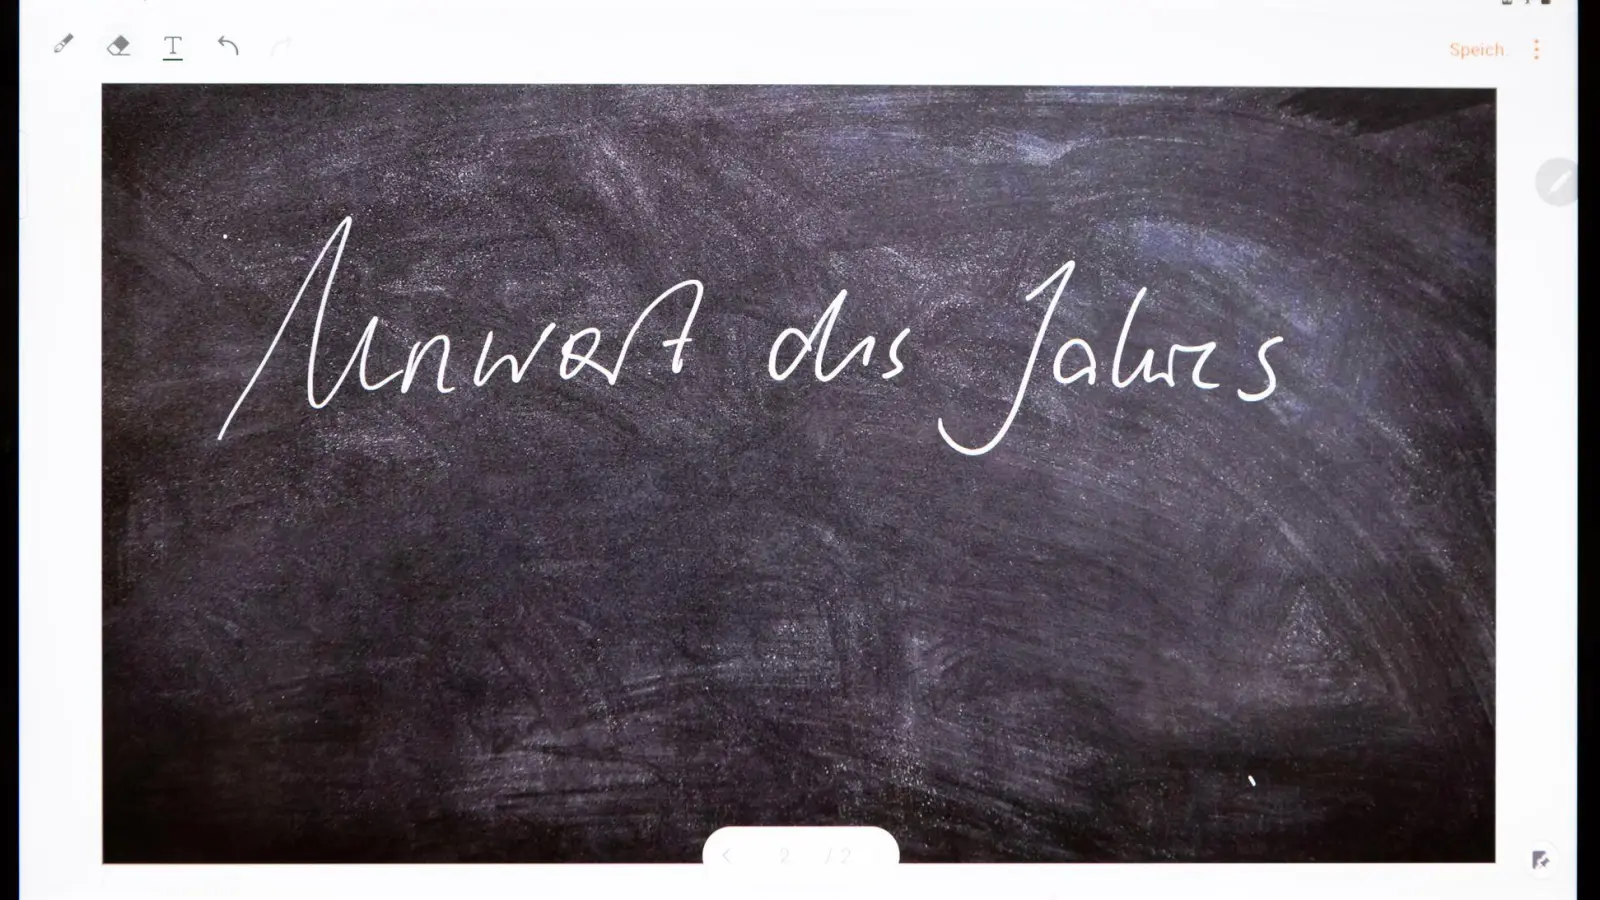 T
Speich.
Unwort des Jahres
2 / 2